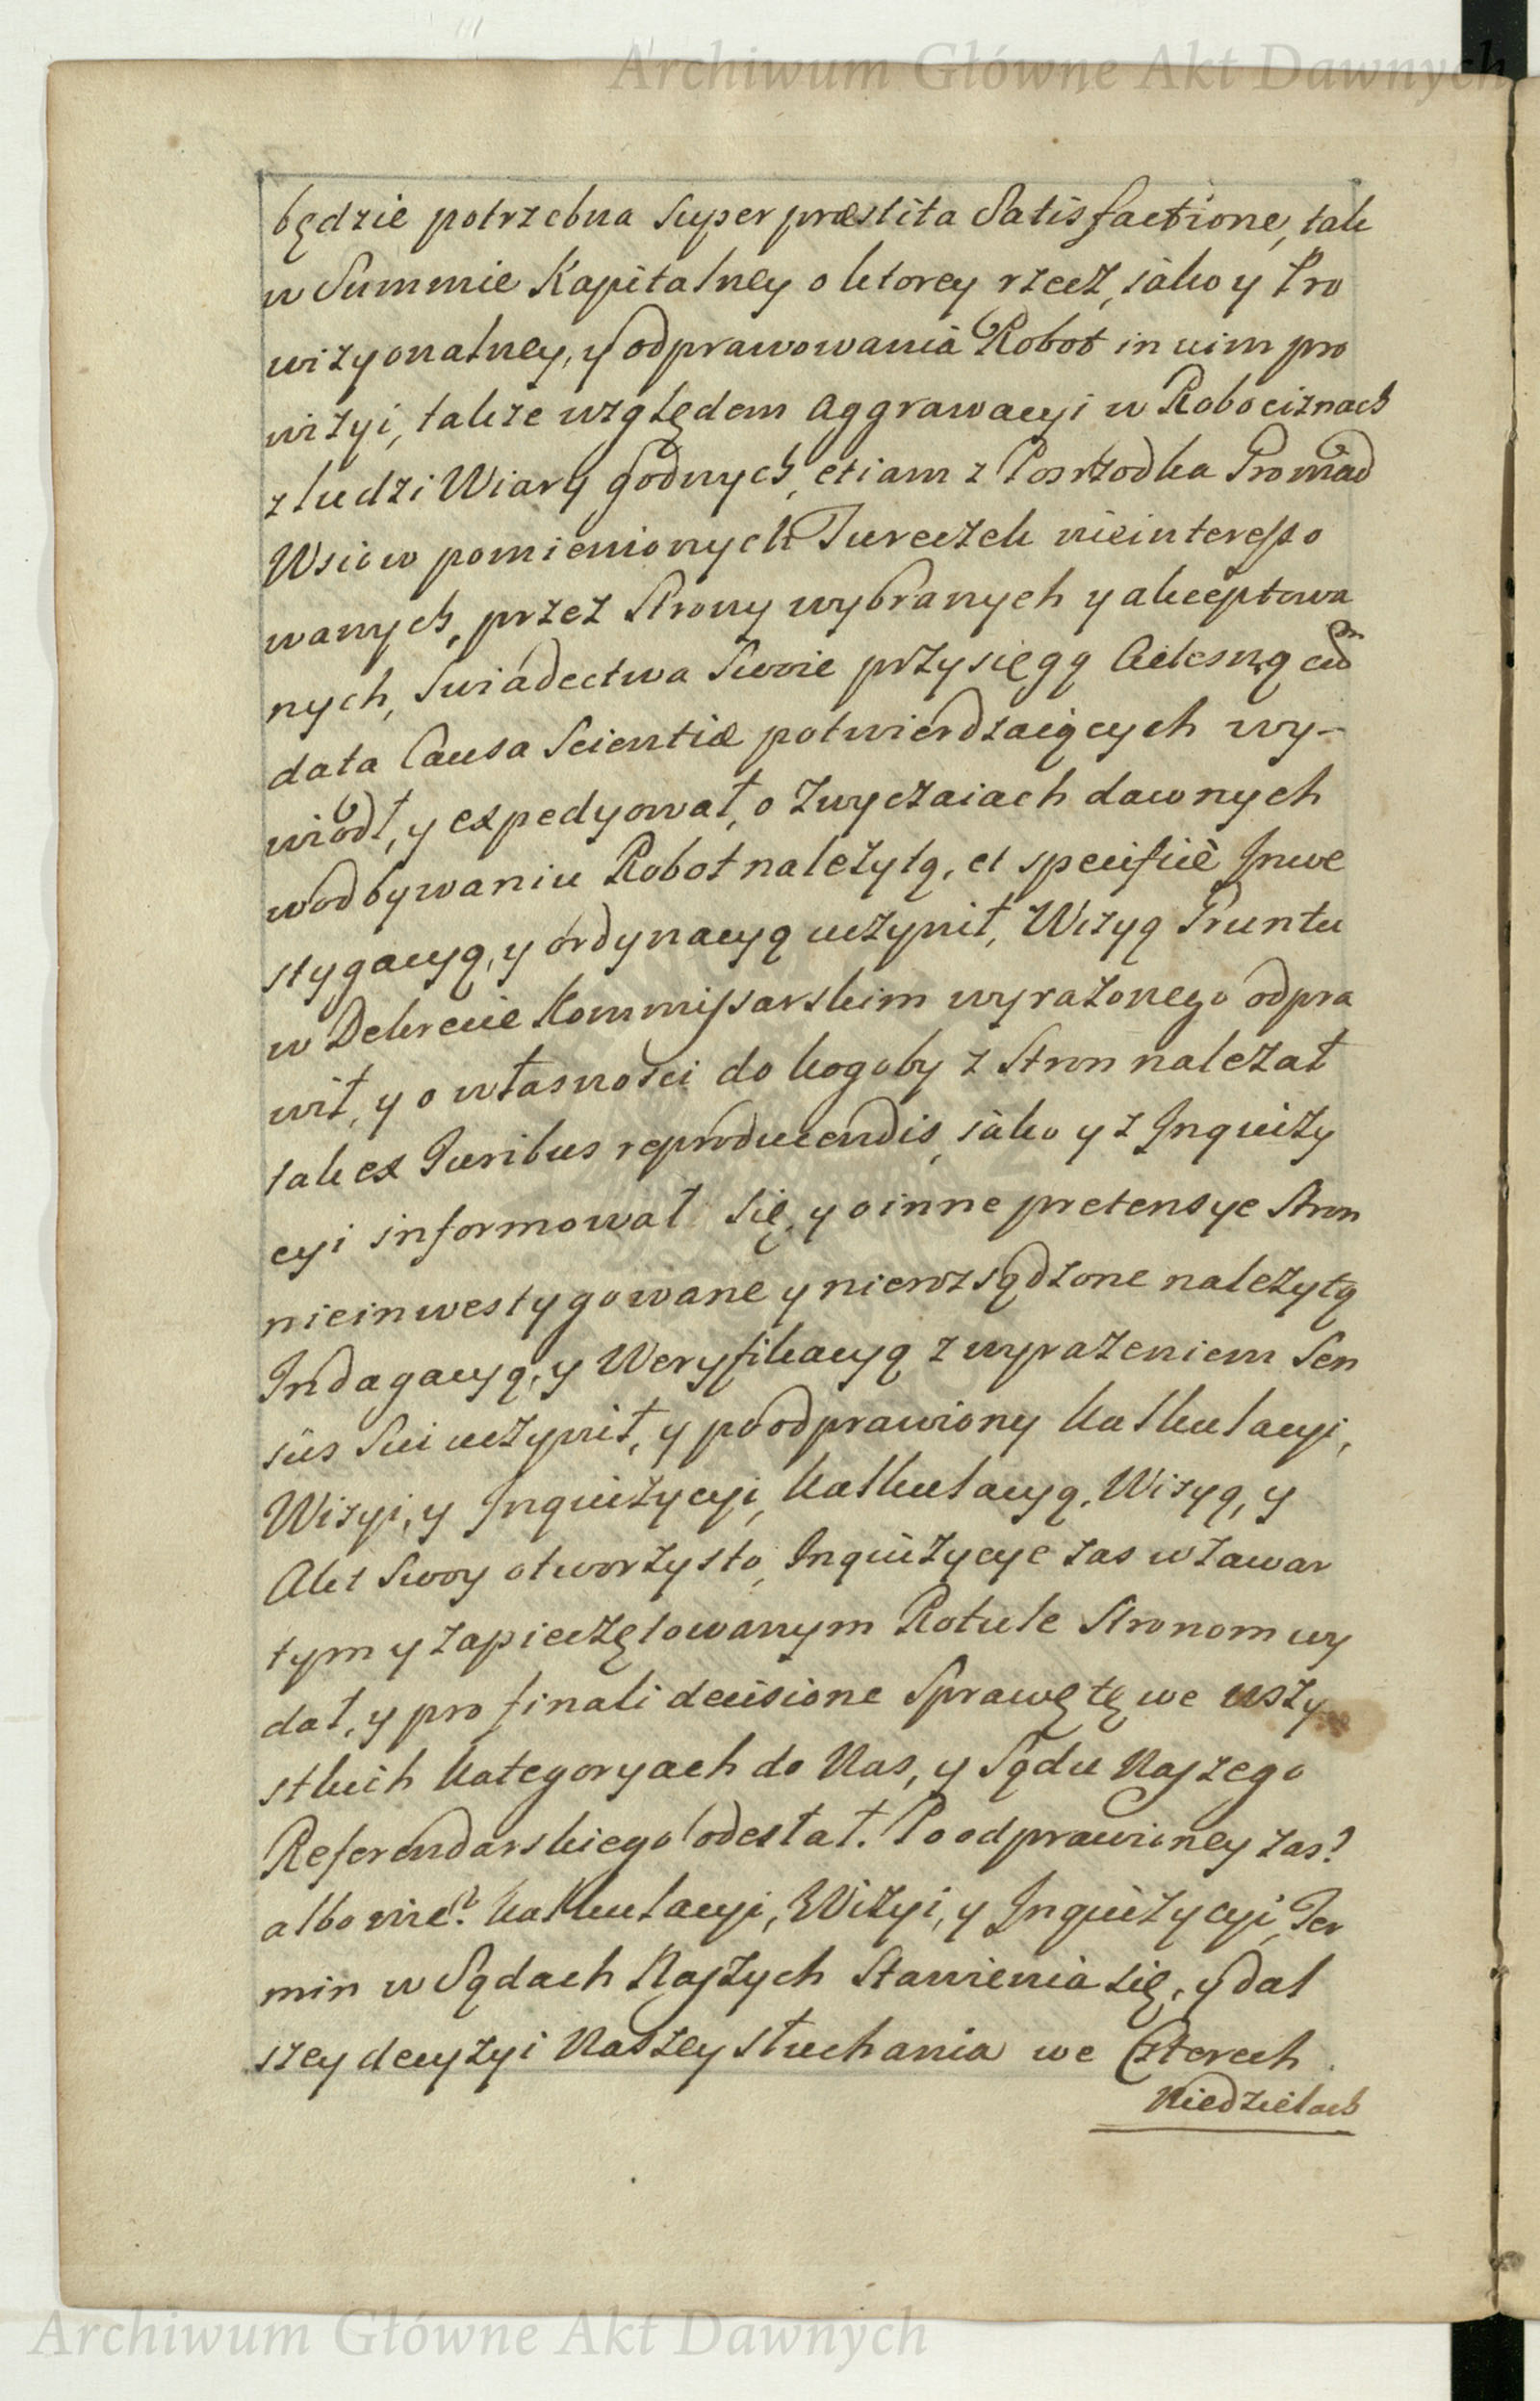 Archiwum Główne Akt Dawnych
będzie potrzebna super præstita Satisfactione, tak
w Summie Kapitalney o ktorey rzecz, iako y Pro
wizyonalney, y odprawowania Robot in vim pro
wizyi, także względem Aggrawacyi w Robociznach
z ludzi Wiary godnych, etiam z Posrzodka Gromad
Wsiow pomienionych Tureczek nieinteresso
wanych, przez Strony wybranych y akceptowa
nych, Swiadectwa Swoie przysięgą Cielesną cum
data Causa Scientiæ potwierdzaiących wy-
wiodł, y expedyował, o Zwyczaiach dawnych
w odbywaniu Robot należytą, et specificè Inwe
stygacyą, y ordynacyą uczynił, Wizyą Gruntu
w Dekrecie Kommissarskim wyrażonego odpra
wił, y o własności do kogoby z Stron należał
tak ex Juribus reproducendis, iako y z Inquizy
cyi informował się, y o inne pretensye Stron
nieinwestygowane y nierozsądzone należytą
Indagacyą, y Weryfikacyą z wyrażeniem Sen
sûs Sui uczynił, y po odprawiony Kalkulacyi,
Wizyi, y Inquizycyi, Kalkulacyą, Wizyą, y
Akt Swoy otworzysto, Inquizycye zas w zawar
tym y zapieczętowanym Rotule Stronom wy
dał, y pro finali decisione Sprawę tę we wszy
stkich kategoryach do Nas, y Sądu Naszego
Referendarskiego odesłał. Po odprawioney zas?
albo nie? Kalkulacyi, Wizyi, y Inquizycyi, Ter
min w Sądach Naszych Stawienia się, y dal
szey decyzyi Naszey słuchania we Czterech
Niedzielach
Archiwum Główne Akt Dawnych